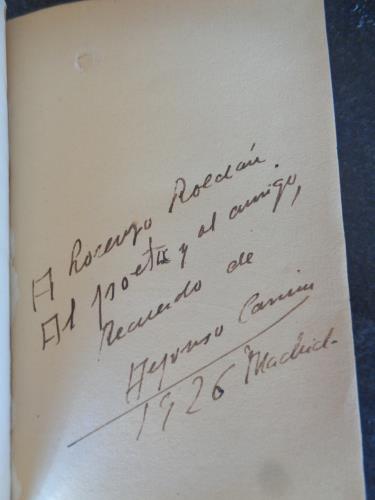 A Lorenzo Roldán.
Al poeta y al amigo,
Recuerdo de
Alfonso Camín
1926 Madrid.